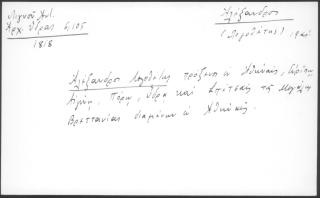 Λιγνού Αντ.
Αρχ. Ύδρας 6, 105
1818
Αλέξανδρος
(Λογοθέτης)
Αλέξανδρος Λογοθέτης πρόξενος εν Αθήναις,
Αιγίνη, Πόρω, Ύδρα και Σπέτσαις της Μεγάλης
Βρεττανίας διαμένων εν Αθήναις.